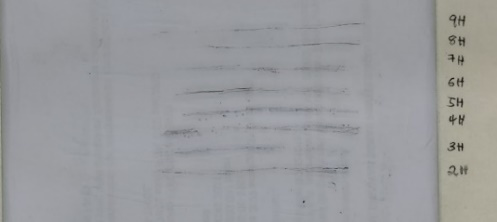 9H
8H
7H
6H
5H
4H
3H
2H